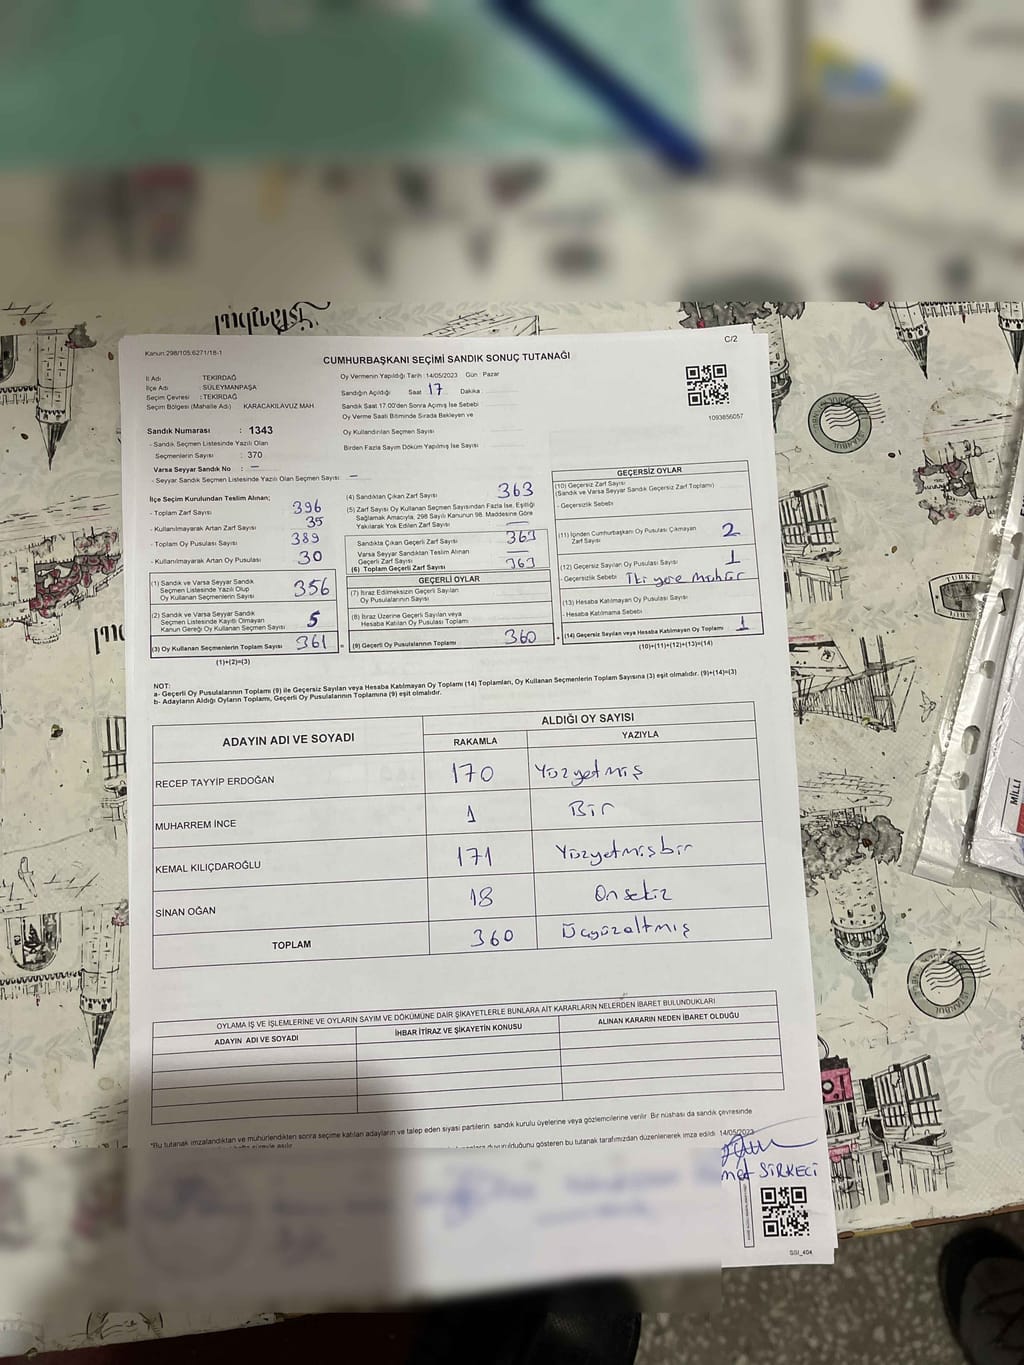 İstanbul
C/2
Kanun:298/105;6271/18-1
CUMHURBAŞKANI SEÇİMİ SANDIK SONUÇ TUTANAĞI
İl Adı : TEKİRDAĞ
İlçe Adı : SÜLEYMANPAŞA
Seçim Çevresi : TEKİRDAĞ
Seçim Bölgesi (Mahalle Adı) KARACAKILAVUZ MAH.
Sandık Numarası : 1343
- Sandık Seçmen Listesinde Yazılı Olan
Seçmenlerin Sayısı : 370
Varsa Seyyar Sandık No : —
- Seyyar Sandık Seçmen Listesinde Yazılı Olan Seçmen Sayısı : —
Oy Vermenin Yapıldığı Tarih : 14/05/2023 Gün : Pazar
Sandığın Açıldığı Saat 17 Dakika
Sandık Saat 17.00'den Sonra Açımış İse Sebebi
Oy Verme Saati Bitiminde Sırada Bekleyen ve
Oy Kullandırılan Seçmen Sayısı
Birden Fazla Sayım Döküm Yapılmış İse Sayısı
1093856057
İlçe Seçim Kurulundan Teslim Alınan;
- Toplam Zarf Sayısı 396
- Kullanılmayarak Artan Zarf Sayısı 35
- Toplam Oy Pusulası Sayısı 389
- Kullanılmayarak Artan Oy Pusulası 30
(1) Sandık ve Varsa Seyyar Sandık
Seçmen Listesinde Yazılı Olup
Oy Kullanan Seçmenlerin Sayısı 356
(2) Sandık ve Varsa Seyyar Sandık
Seçmen Listesinde Kayıtlı Olmayan
Kanun Gereği Oy Kullanan Seçmen Sayısı 5
(3) Oy Kullanan Seçmenlerin Toplam Sayısı 361
(1)+(2)=(3)
(4) Sandıktan Çıkan Zarf Sayısı 363
(5) Zarf Sayısı Oy Kullanan Seçmen Sayısından Fazla İse, Eşitliği
Sağlamak Amacıyla, 298 Sayılı Kanunun 98. Maddesine Göre
Yakılarak Yok Edilen Zarf Sayısı —
Sandıkta Çıkan Geçerli Zarf Sayısı 363
Varsa Seyyar Sandıktan Teslim Alınan
Geçerli Zarf Sayısı —
(6) Toplam Geçerli Zarf Sayısı 363
GEÇERLİ OYLAR
(7) İtiraz Edilmeksizin Geçerli Sayılan
Oy Pusulalarının Sayısı
(8) İtiraz Üzerine Geçerli Sayılan veya
Hesaba Katılan Oy Pusulası Toplamı
= (9) Geçerli Oy Pusulalarının Toplamı 360
GEÇERSİZ OYLAR
(10) Geçersiz Zarf Sayısı
(Sandık ve Varsa Seyyar Sandık Geçersiz Zarf Toplamı)
- Geçersizlik Sebebi
(11) İçinden Cumhurbaşkanı Oy Pusulası Çıkmayan
Zarf Sayısı 2
(12) Geçersiz Sayılan Oy Pusulası Sayısı 1
- Geçersizlik Sebebi İki yere mühür
(13) Hesaba Katılmayan Oy Pusulası Sayısı
- Hesaba Katılmama Sebebi
+ (14) Geçersiz Sayılan veya Hesaba Katılmayan Oy Toplamı 1
(10)+(11)+(12)+(13)=(14)
NOT:
a- Geçerli Oy Pusulalarının Toplamı (9) ile Geçersiz Sayılan veya Hesaba Katılmayan Oy Toplamı (14) Toplamları, Oy Kullanan Seçmenlerin Toplam Sayısına (3) eşit olmalıdır. (9)+(14)=(3)
b- Adayların Aldığı Oyların Toplamı, Geçerli Oy Pusulalarının Toplamına (9) eşit olmalıdır.
ADAYIN ADI VE SOYADI
ALDIĞI OY SAYISI
RAKAMLA YAZIYLA
RECEP TAYYİP ERDOĞAN 170 Yüzyetmiş
MUHARREM İNCE 1 Bir
KEMAL KILIÇDAROĞLU 171 Yüzyetmişbir
SİNAN OĞAN 18 Onsekiz
TOPLAM 360 Üçyüzaltmış
OYLAMA İŞ VE İŞLEMLERİNE VE OYLARIN SAYIM VE DÖKÜMÜNE DAİR ŞİKAYETLERLE BUNLARA AİT KARARLARIN NELERDEN İBARET BULUNDUKLARI
ADAYIN ADI VE SOYADI İHBAR İTİRAZ VE ŞİKAYETİN KONUSU ALINAN KARARIN NEDEN İBARET OLDUĞU
*Bu tutanak imzalandıktan ve mühürlendikten sonra seçime katılan adayların ve talep eden siyasi partilerin sandık kurulu üyelerine veya gözlemcilerine verilir. Bir nüshası da sandık çevresinde
duyurulduğunu gösteren bu tutanak tarafımızdan düzenlenerek imza edildi. 14/05/2023
met SİRKECİ
SSI_404
MİLLİ
TURKEY